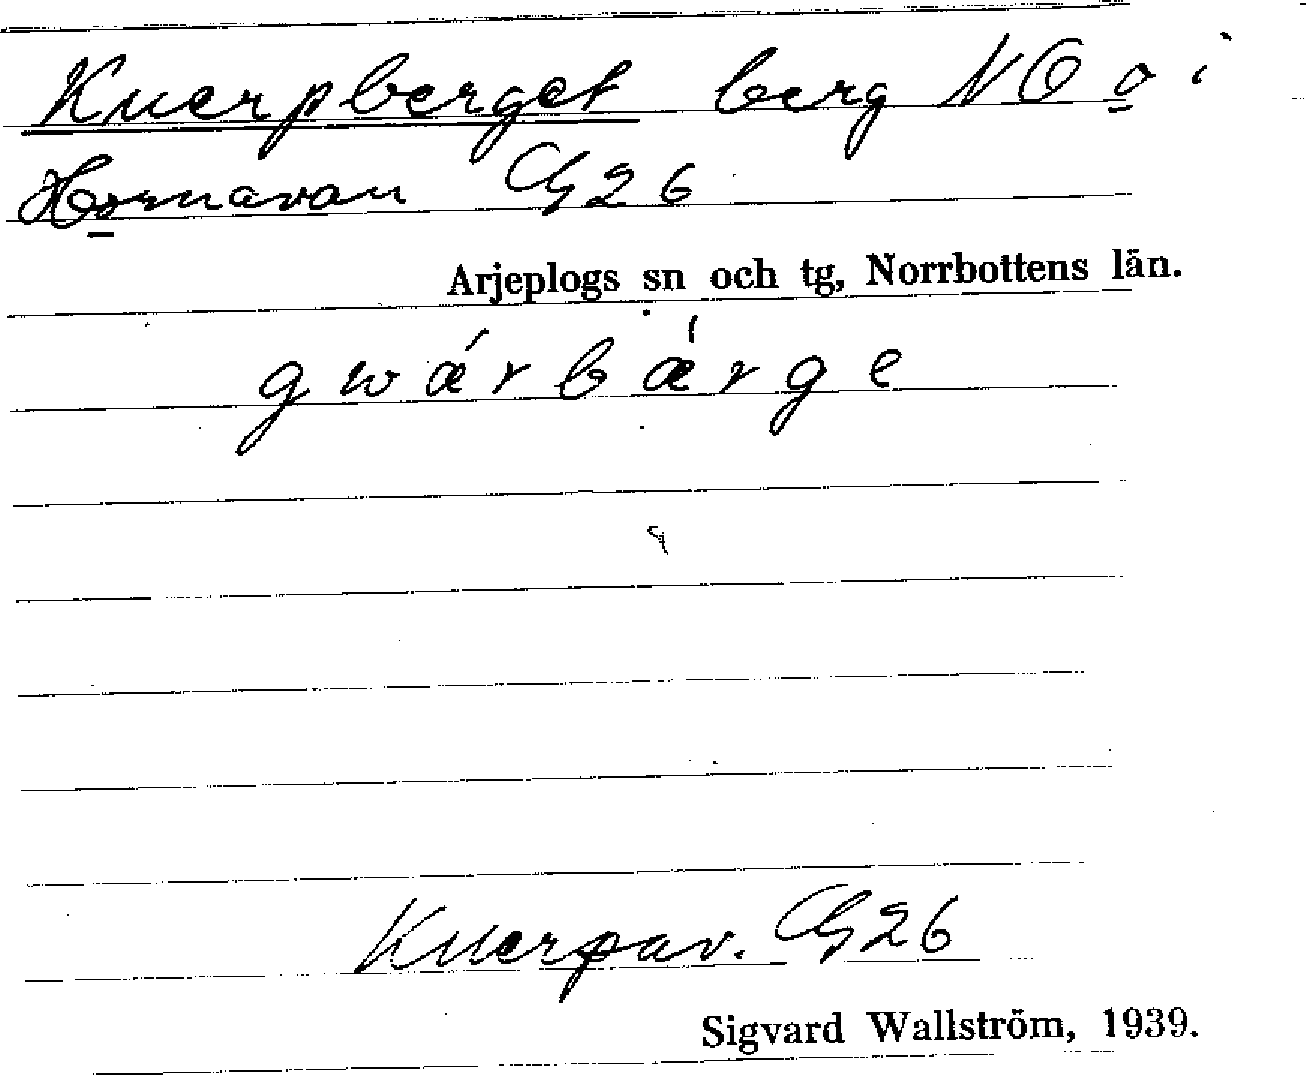 Kuerpberget berg NO o i
Hornavan G26
Arjeplogs sn och tg, Norrbottens län.
gwǽrbǽrge
Kuerpav. G26
Sigvard Wallström, 1939.